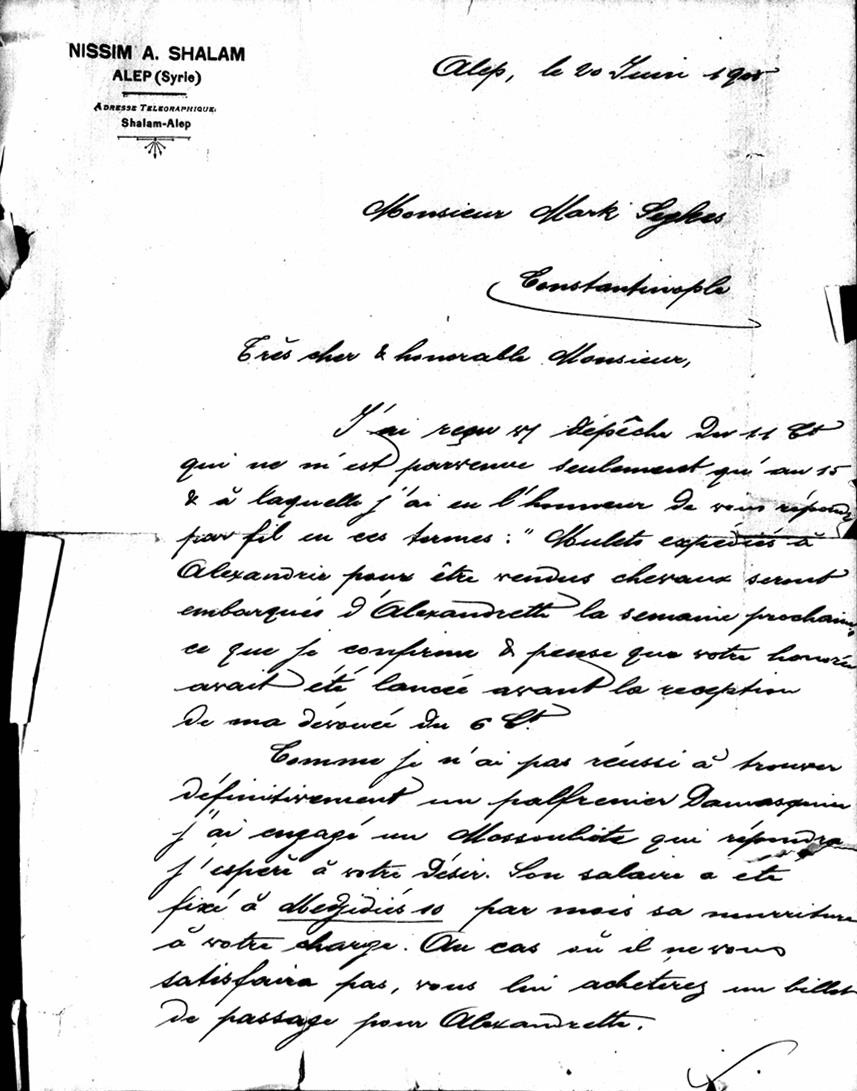 NISSIM A. SHALAM
ALEP (Syrie)
ADRESSE TELEGRAPHIQUE.
Shalam-Alep
Alep, le 20 Juin
Monsieur Mark Sykes
Constantinople
Très cher & honorable Monsieur,
J'ai reçu dépêche du 11 Ct
qui ne m'est parvenue seulement qu'au 15
& à laquelle j'ai eu l'honneur de vous
par fil en ces termes : " Mulets expédiés à
Alexandrie pour être vendus chevaux seront
embarqués d'Alexandrette la semaine prochaine
ce que je confirme & pense que votre honorée
avait été lancée avant la reception
de ma dévouée du 6 Ct.
Comme je n'ai pas réussi à trouver
définitivement un palfrenier Damasquin
j'ai engagé un Mossouliote qui répondra
j'espère à votre désir. Son salaire a été
fixé à Medjidiés 10 par mois sa nourriture
à votre charge. Au cas où il ne vous
satisfaira pas, vous lui achéterez un billet
de passage pour Alexandrette.